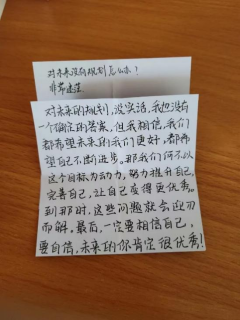 对未来没有规划怎么办？
非常迷茫
对未来的规划，说实话，我也没有
一个确定的答案，但我相信，我们
都希望未来的我们更好，都希
望自己不断进步。那我们何不以
这个目标为动力，努力提升自己，
完善自己，让自己变得更优秀。
到那时，这些问题就会迎刃
而解。最后，一定要相信自己，
要自信，未来的你肯定很优秀！